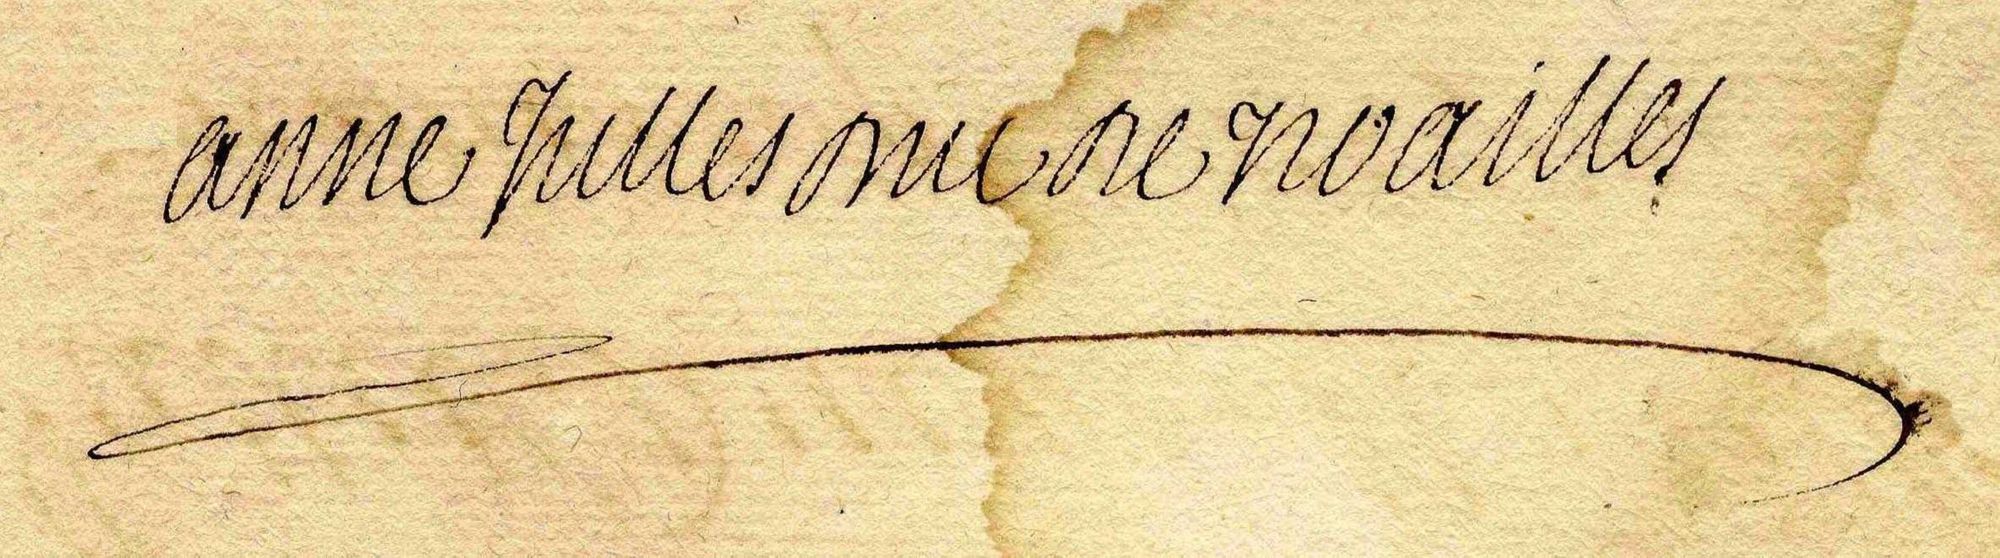 anne Julles duc de noailles